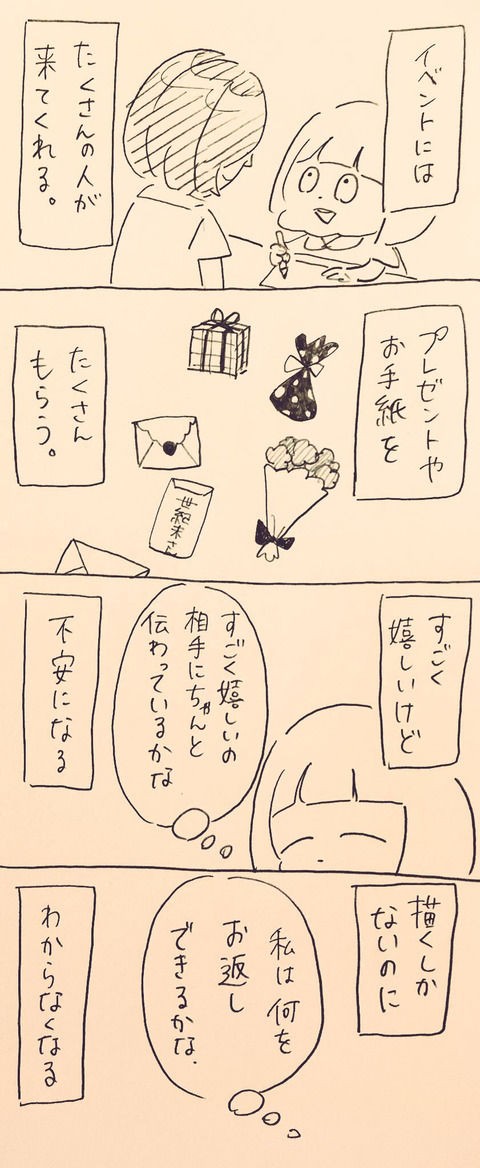 イベントには
たくさんの人が
来てくれる。
プレゼントや
お手紙を
世紀末さん
たくさん
もらう。
すごく
嬉しいけど
すごく嬉しいの
相手にちゃんと
伝わっているかな
不安になる
描くしか
ないのに
私は何を
お返し
できるかな.
わからなくなる